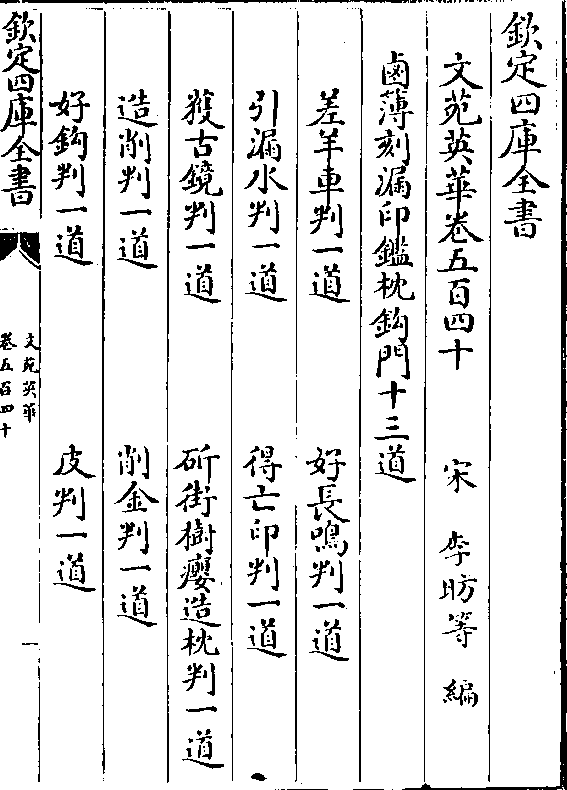 欽定四庫全書
文苑英華卷五百四十 宋 李昉等 編
鹵薄刻漏印鑑枕鈎門十三道
差羊車判一道 好長鳴判一道
引漏水判一道 得亡印判一道
獲古鏡判一道 斫街樹癭造枕判一道
造削判一道 削金判一道
好鈎判一道 皮判一道
欽定四庫全書
文苑英華
卷五百四十
一